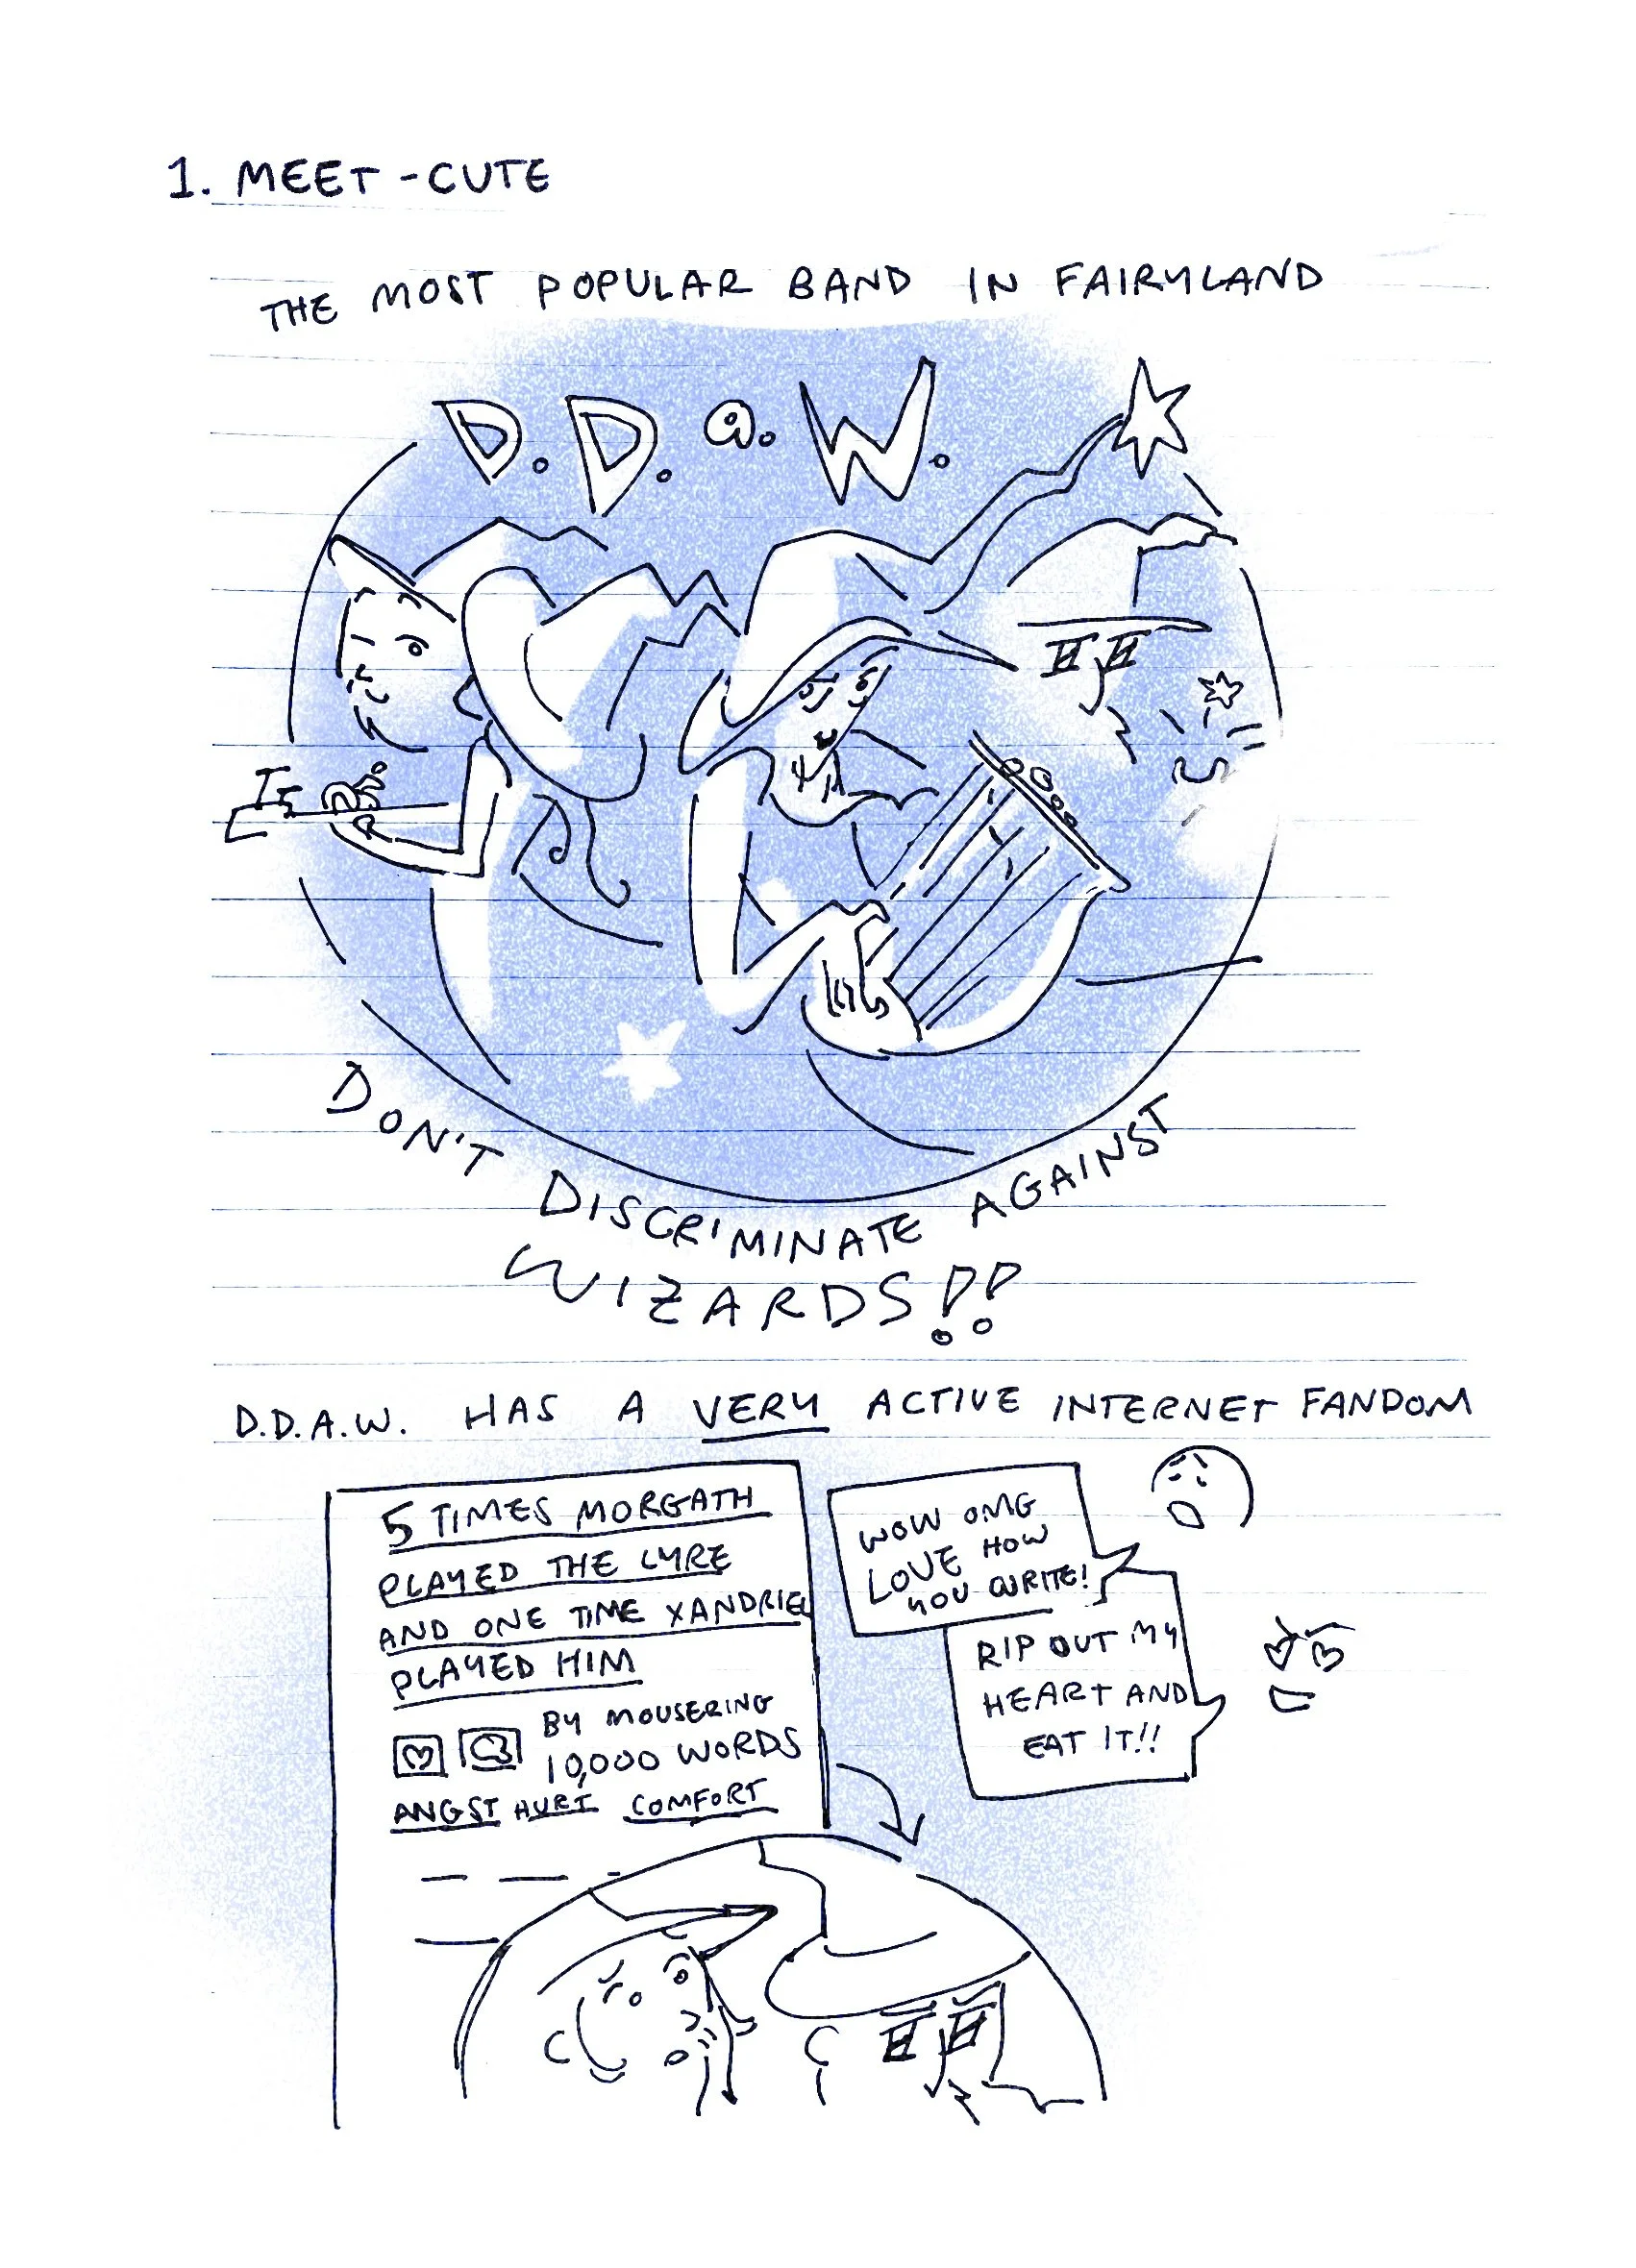 1. MEET-CUTE
THE MOST POPULAR BAND IN FAIRYLAND
D.D.a.W.
DON'T DISCRIMINATE AGAINST
WIZARDS!!
D.D.A.W. HAS A VERY ACTIVE INTERNET FANDOM
5 TIMES MORGATH
PLAYED THE LYRE
AND ONE TIME XANDRIEL
PLAYED HIM
BY MOUSERING
10,000 WORDS
ANGST HURT COMFORT
WOW OMG
LOVE HOW
YOU WRITE!
RIP OUT MY
HEART AND
EAT IT!!